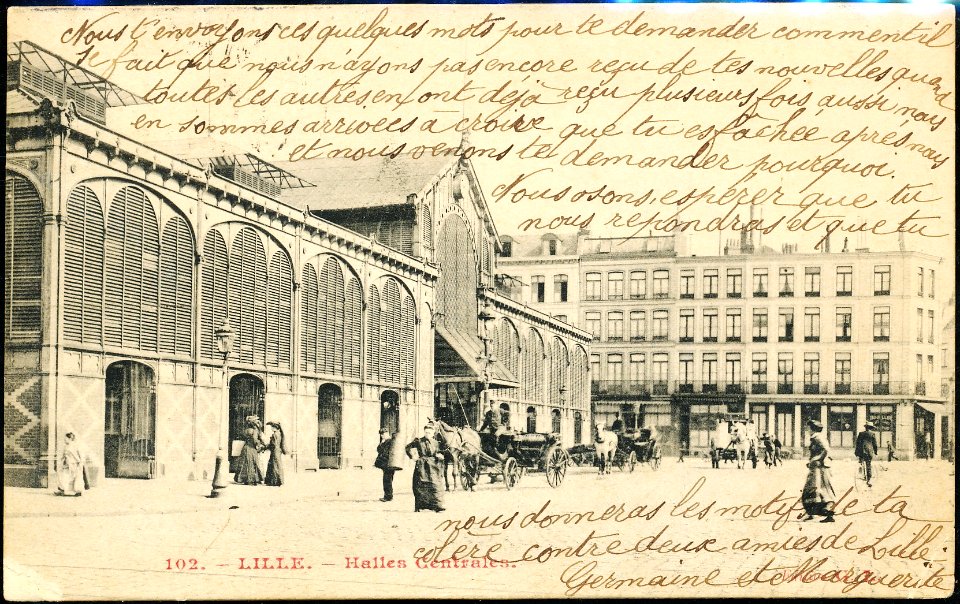 Nous t'envoyons ces quelques mots pour te demander comment il
se fait que nous n'ayons pas encore reçu de tes nouvelles quand
toutes les autres, en ont déjà reçu plusieurs fois, aussi nous
en sommes arrivées à croire que tu es fâchée après nous
et nous venons te demander pourquoi.
Nous osons, espérer que tu
nous repondras et que tu
nous donneras les motifs de ta
colère contre deux amies de Lille.
Germaine et Marguerite
102. - LILLE. - Halles Centrales.